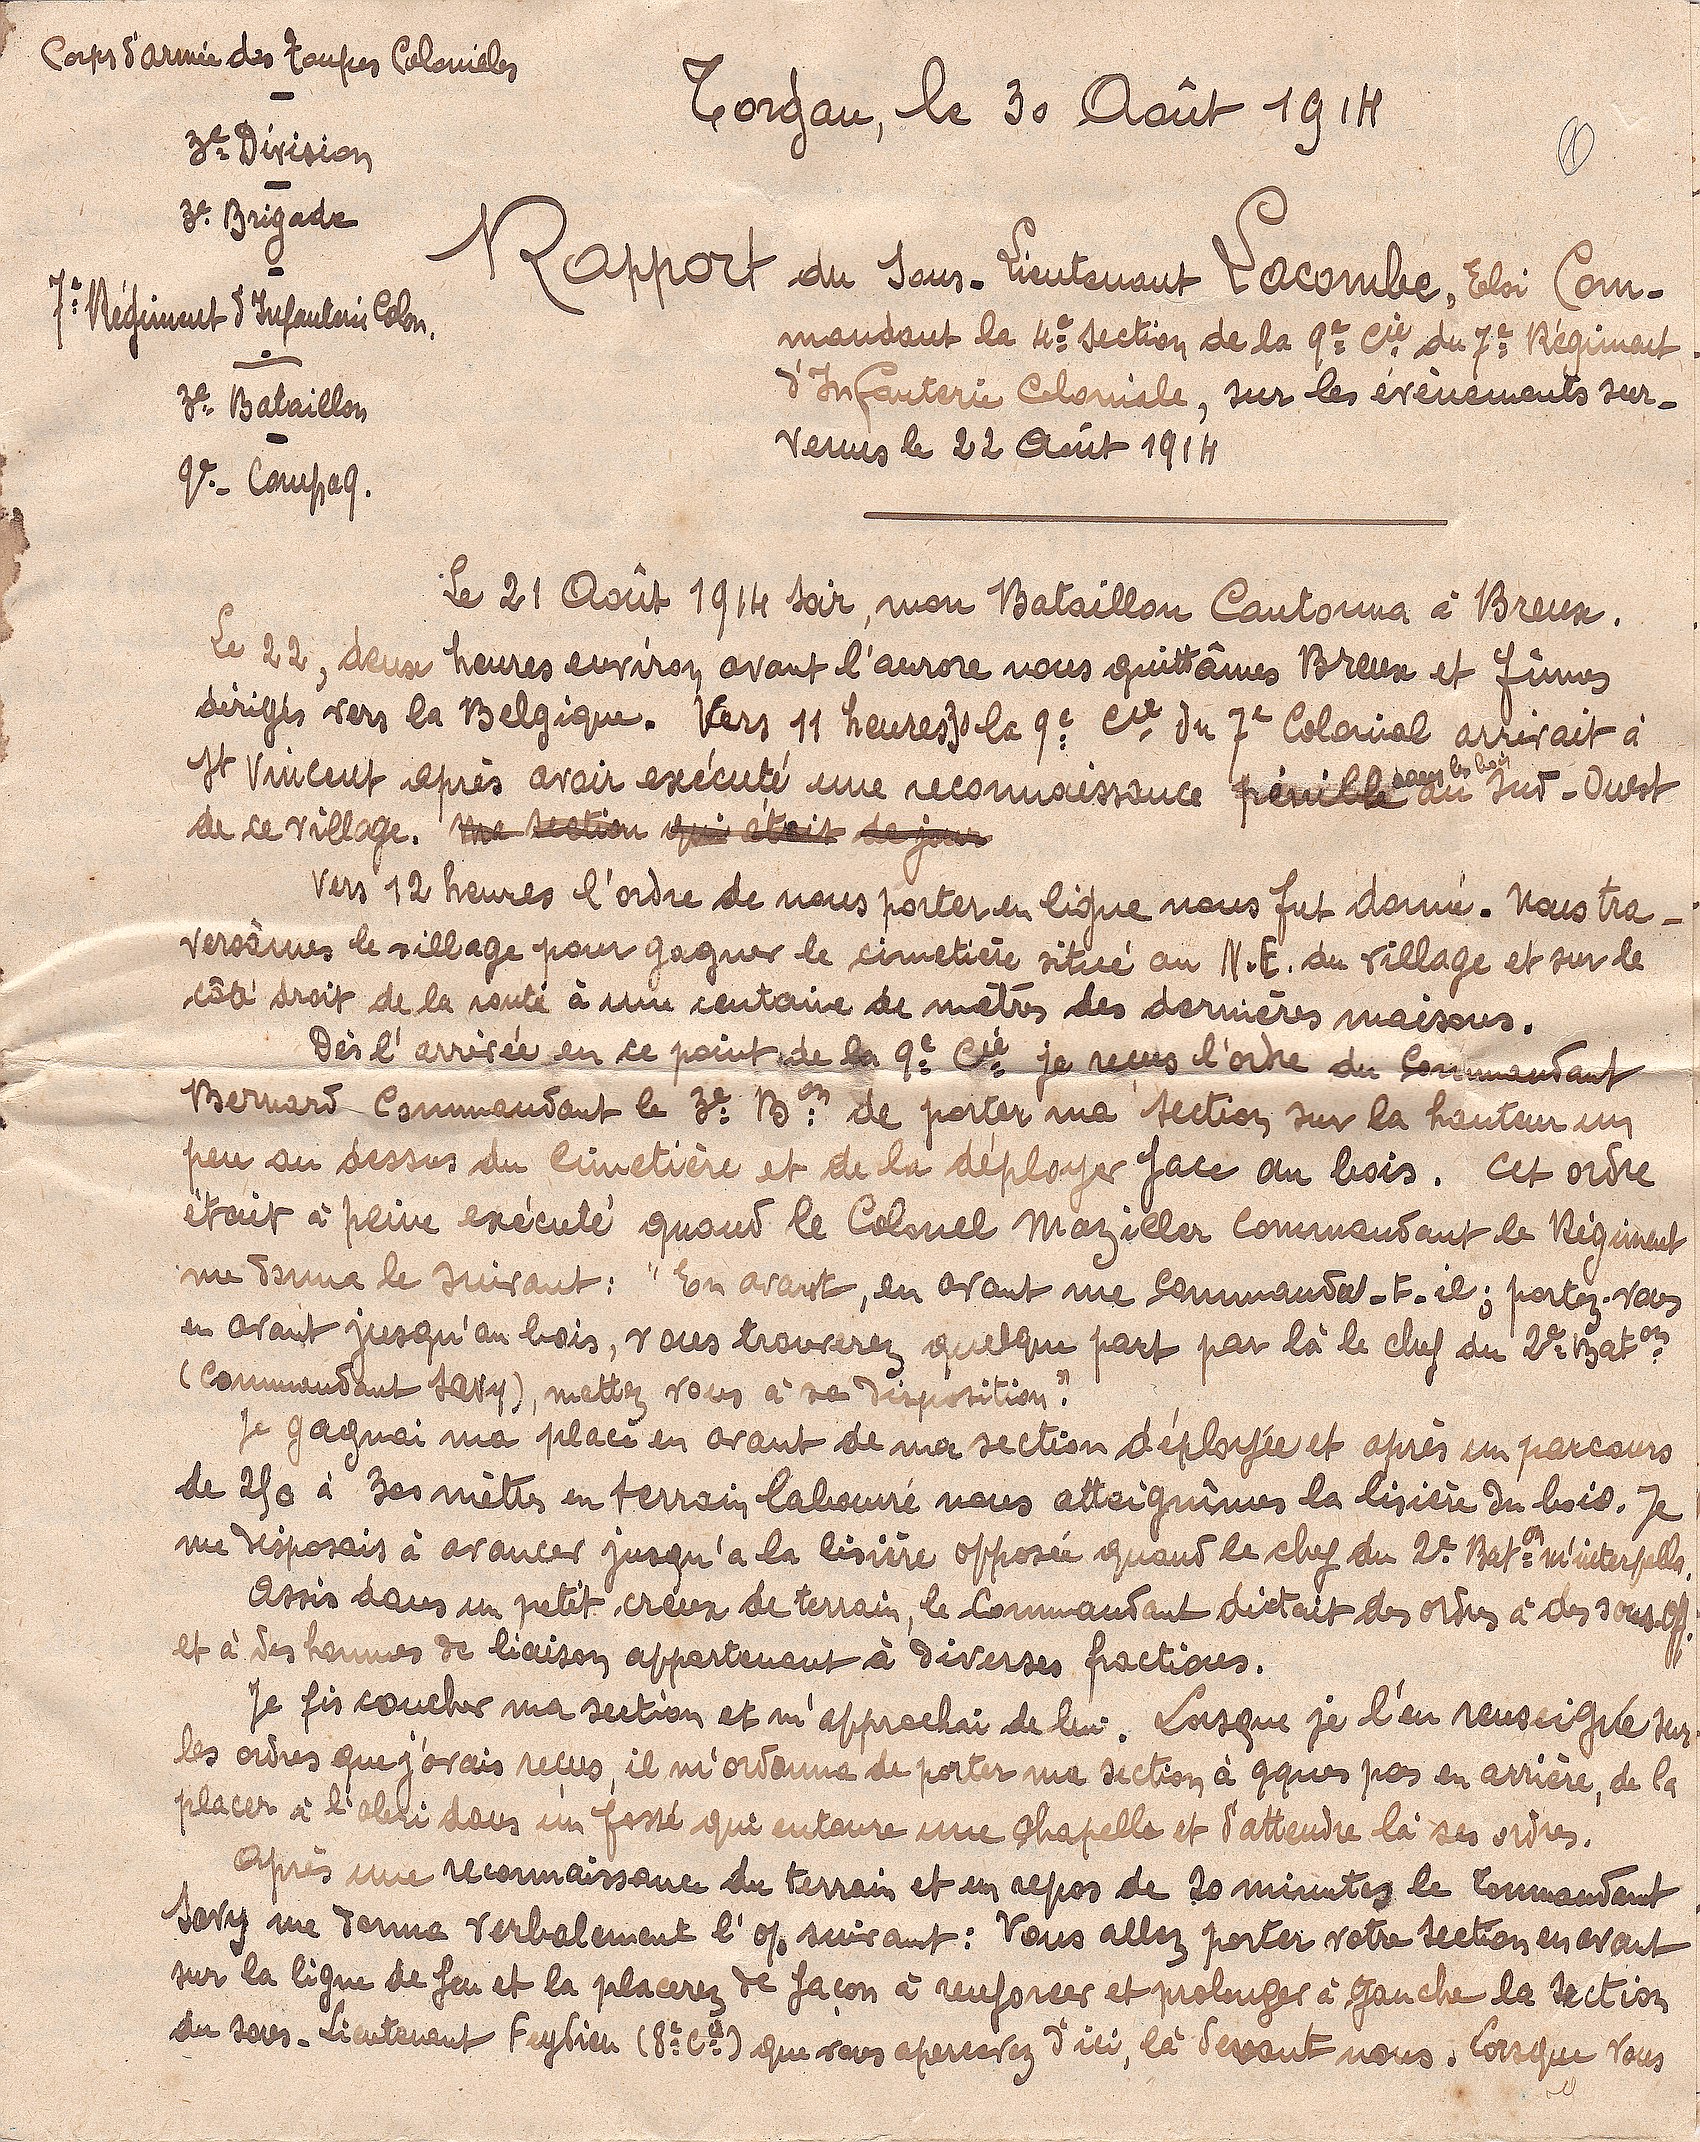 Corps d'armée des Troupes Coloniales
3e Division
3e Brigade
7e Régiment d'Infanterie Colon.
3e Bataillon
9e Compag.
Torgau, le 30 Août 1914
Rapport du Sous-Lieutenant Lacombe, Eloi Com-
mandant la 4e section de la 9e Cie du 7e Régiment
d'Infanterie Coloniale, sur les évènements sur-
venus le 22 Août 1914
Le 21 Août 1914 soir, mon Bataillon Cantonna à Breux.
Le 22, deux heures environ avant l'aurore nous quittâmes Breux et fûmes
dirigés vers la Belgique. Vers 11 heures 30 la 9e Cie du 7e Colonial arrivait à
St Vincent après avoir exécuté une reconnaissance pénible dans les bois au Sud-Ouest
de ce village. Ma section qui était de jour
Vers 12 heures l'ordre de nous porter en ligne nous fut donné. Nous tra-
versâmes le village pour gagner le cimetière situé au N.E. du village et sur le
côté droit de la route à une centaine de mètres des dernières maisons.
Dès l'arrivée en ce point de la 9e Cie je reçus l'ordre du Commandant
Bernard Commandant le 3e Bon de porter ma section sur la hauteur un
peu au dessus du cimetière et de la déployer face au bois. Cet ordre
était à peine exécuté quand le Colonel Mazillier Commandant le Régiment
me donna le suivant: "En avant, en avant me commanda-t-il; portez-vous
en avant jusqu'au bois, vous trouverez quelque part par là le chef du 2e Baton
(Commandant Savy), mettez vous à sa disposition".
Je gagnai ma place en avant de ma section déployée et après un parcours
de 250 à 300 mètres en terrain labouré nous atteignîmes la lisière du bois. Je
me disposais à avancer jusqu'a la lisière opposée quand le chef du 2e Baton m'interpella.
Assis dans un petit creux de terrain, le Commandant dictait des ordres à des sous-off.
et à des hommes de liaison appartenant à diverses fractions.
Je fis coucher ma section et m'approchai de lui. Lorsque je l'eu renseigné sur
les ordres que j'avais reçus, il m'ordonna de porter ma section à qques pas en arrière, de la
placer à l'abri dans un fossé qui entoure une chapelle et d'attendre là ses ordres.
Après une reconnaissance du terrain et un repos de 20 minutes le Commandant
Savy me donna verbalement l'o/. suivant: Vous allez porter votre section en avant
sur la ligne de feu et la placerez de façon à renforcer et prolonger à gauche la section
du sous-Lieutenant Feydieu (8e Cie) que vous apercevez d'ici, là devant nous. Lorsque vous